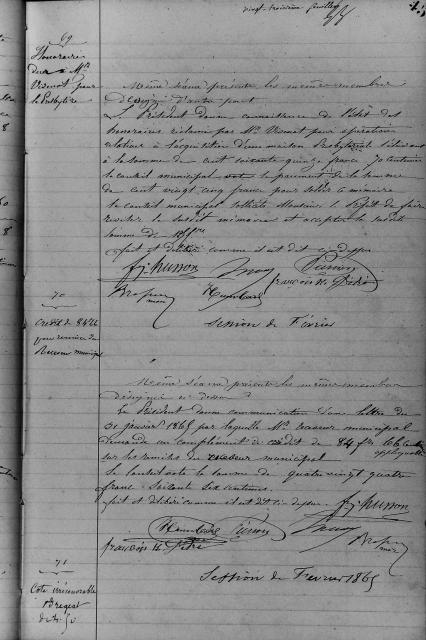 vingt troisième feuillet
69
Honoraires
dus à Mr
Vremot pour
le Presbytère
Même séance présents les mêmes membres
désignés d'autre part
Le Président donne connaissance de l'état des
honoraires réclamés par Mr Vremot pour opérations
relatives à l'acquisition d'une maison Presbytérale s'élevant
à la somme de cent soixante quinze francs 70 centimes
le conseil municipal vote le paiement de la somme
de cent vingt cinq francs pour solde ce mémoire
le conseil municipal sollicite Monsieur le Préfet de faire
le susdit mémoire et accepter la susdite
somme de
fait et délibéré comme il est dit ci dessus
f. j. husson
françois N. Pedre
maire
70
Crédit de 84 66
pour remise du
Receveur municipal
Session de Février
Même séance présents les mêmes membres
désignés ci dessus
Le Président donne communication d'une lettre du
31 janvier 1865 par laquelle Mr receveur municipal
demande un complément de crédit de 84 frs 66 c applicable
sur les remises du receveur municipal
Le conseil vote la somme de quatre vingt quatre
francs soixante six centimes
fait et délibéré comme il est dit ci dessus f. j. husson
françois N. Pedre
maire
71
Cote irrécouvrable
Session de Fevrier 1865